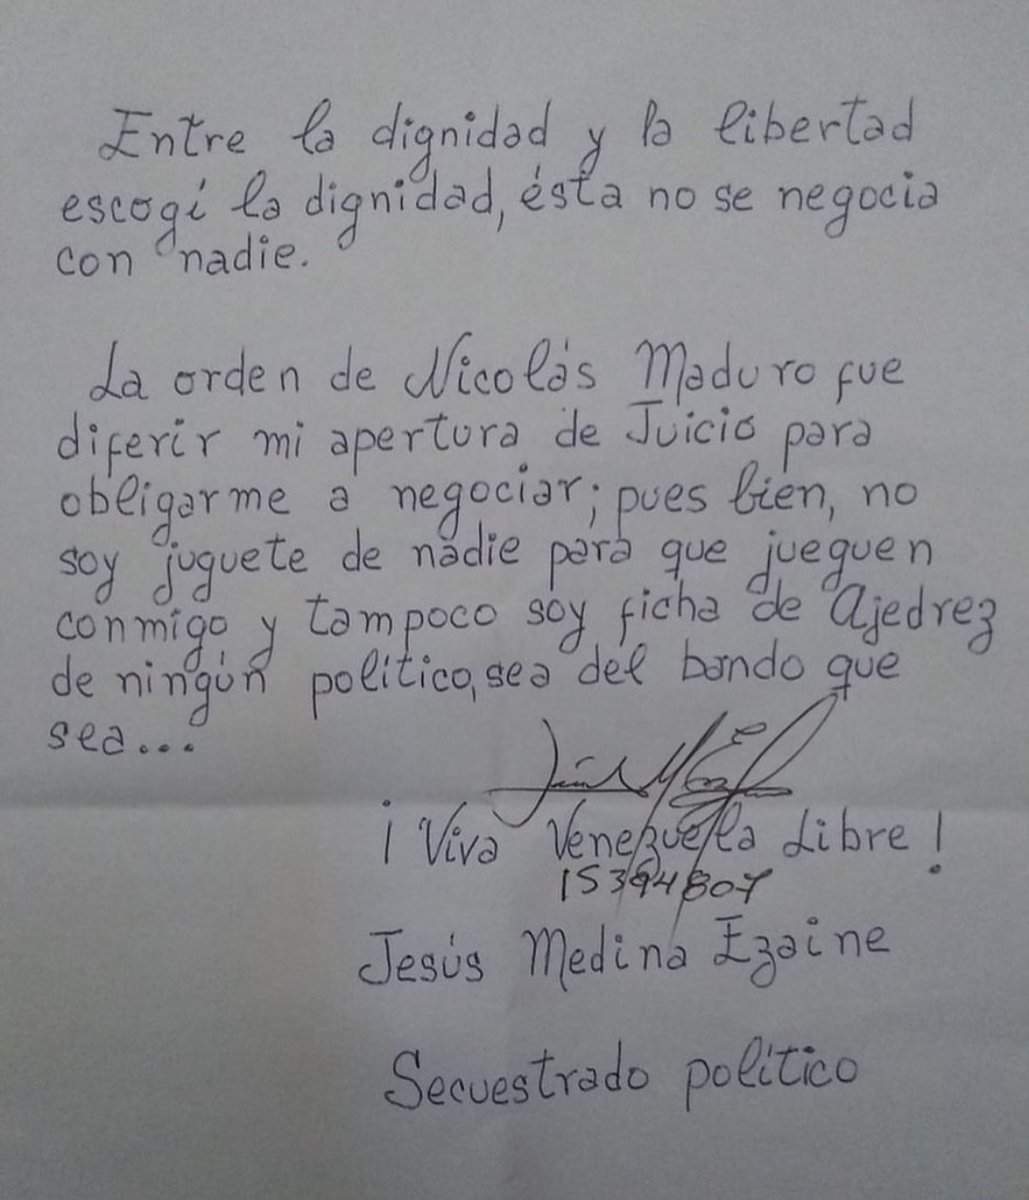 Entre la dignidad y la libertad
escogí la dignidad, ésta no se negocia
con nadie.
La orden de Nicolás Maduro fue
diferir mi apertura de Juicio para
obligarme a negociar; pues bien, no
soy juguete de nadie para que jueguen
conmigo y tampoco soy ficha de Ajedrez
de ningún político, sea del bando que
sea...
¡Viva Venezuela Libre!
15394807
Jesús Medina Ezaine
Secuestrado político